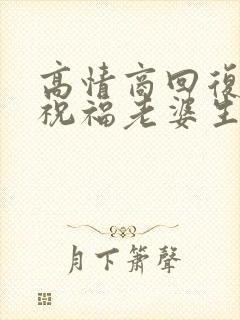 高情商回復
祝福老婆生
月下簫聲